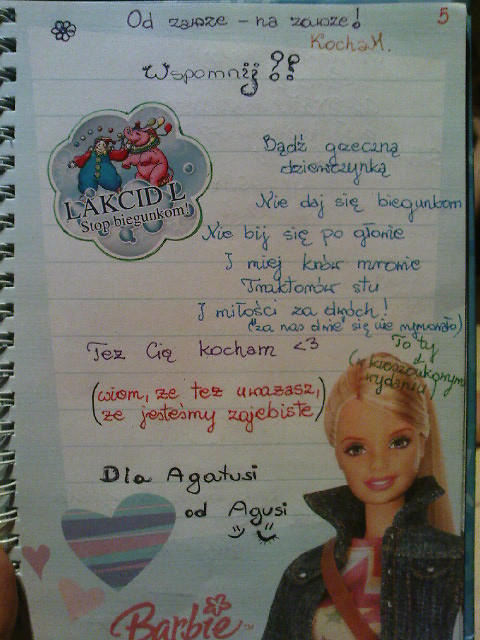 Od zawsze - na zawsze!
5
KochaM.
Wspomnij ??
Bądź grzeczną
dziewczynką
LAKCID L
Stop biegunkom!
Nie daj się biegunkom
Nie bij się po głowie
I miej krów mrowie
Traktorów stu
I miłości za dwóch!
(za nas dwie się nie rymowało)
Też Cię kocham <3
To ty
(wiem, że też uważasz,
że jesteśmy zajebiste)
Dla Agatusi
od Agusi
Barbie™